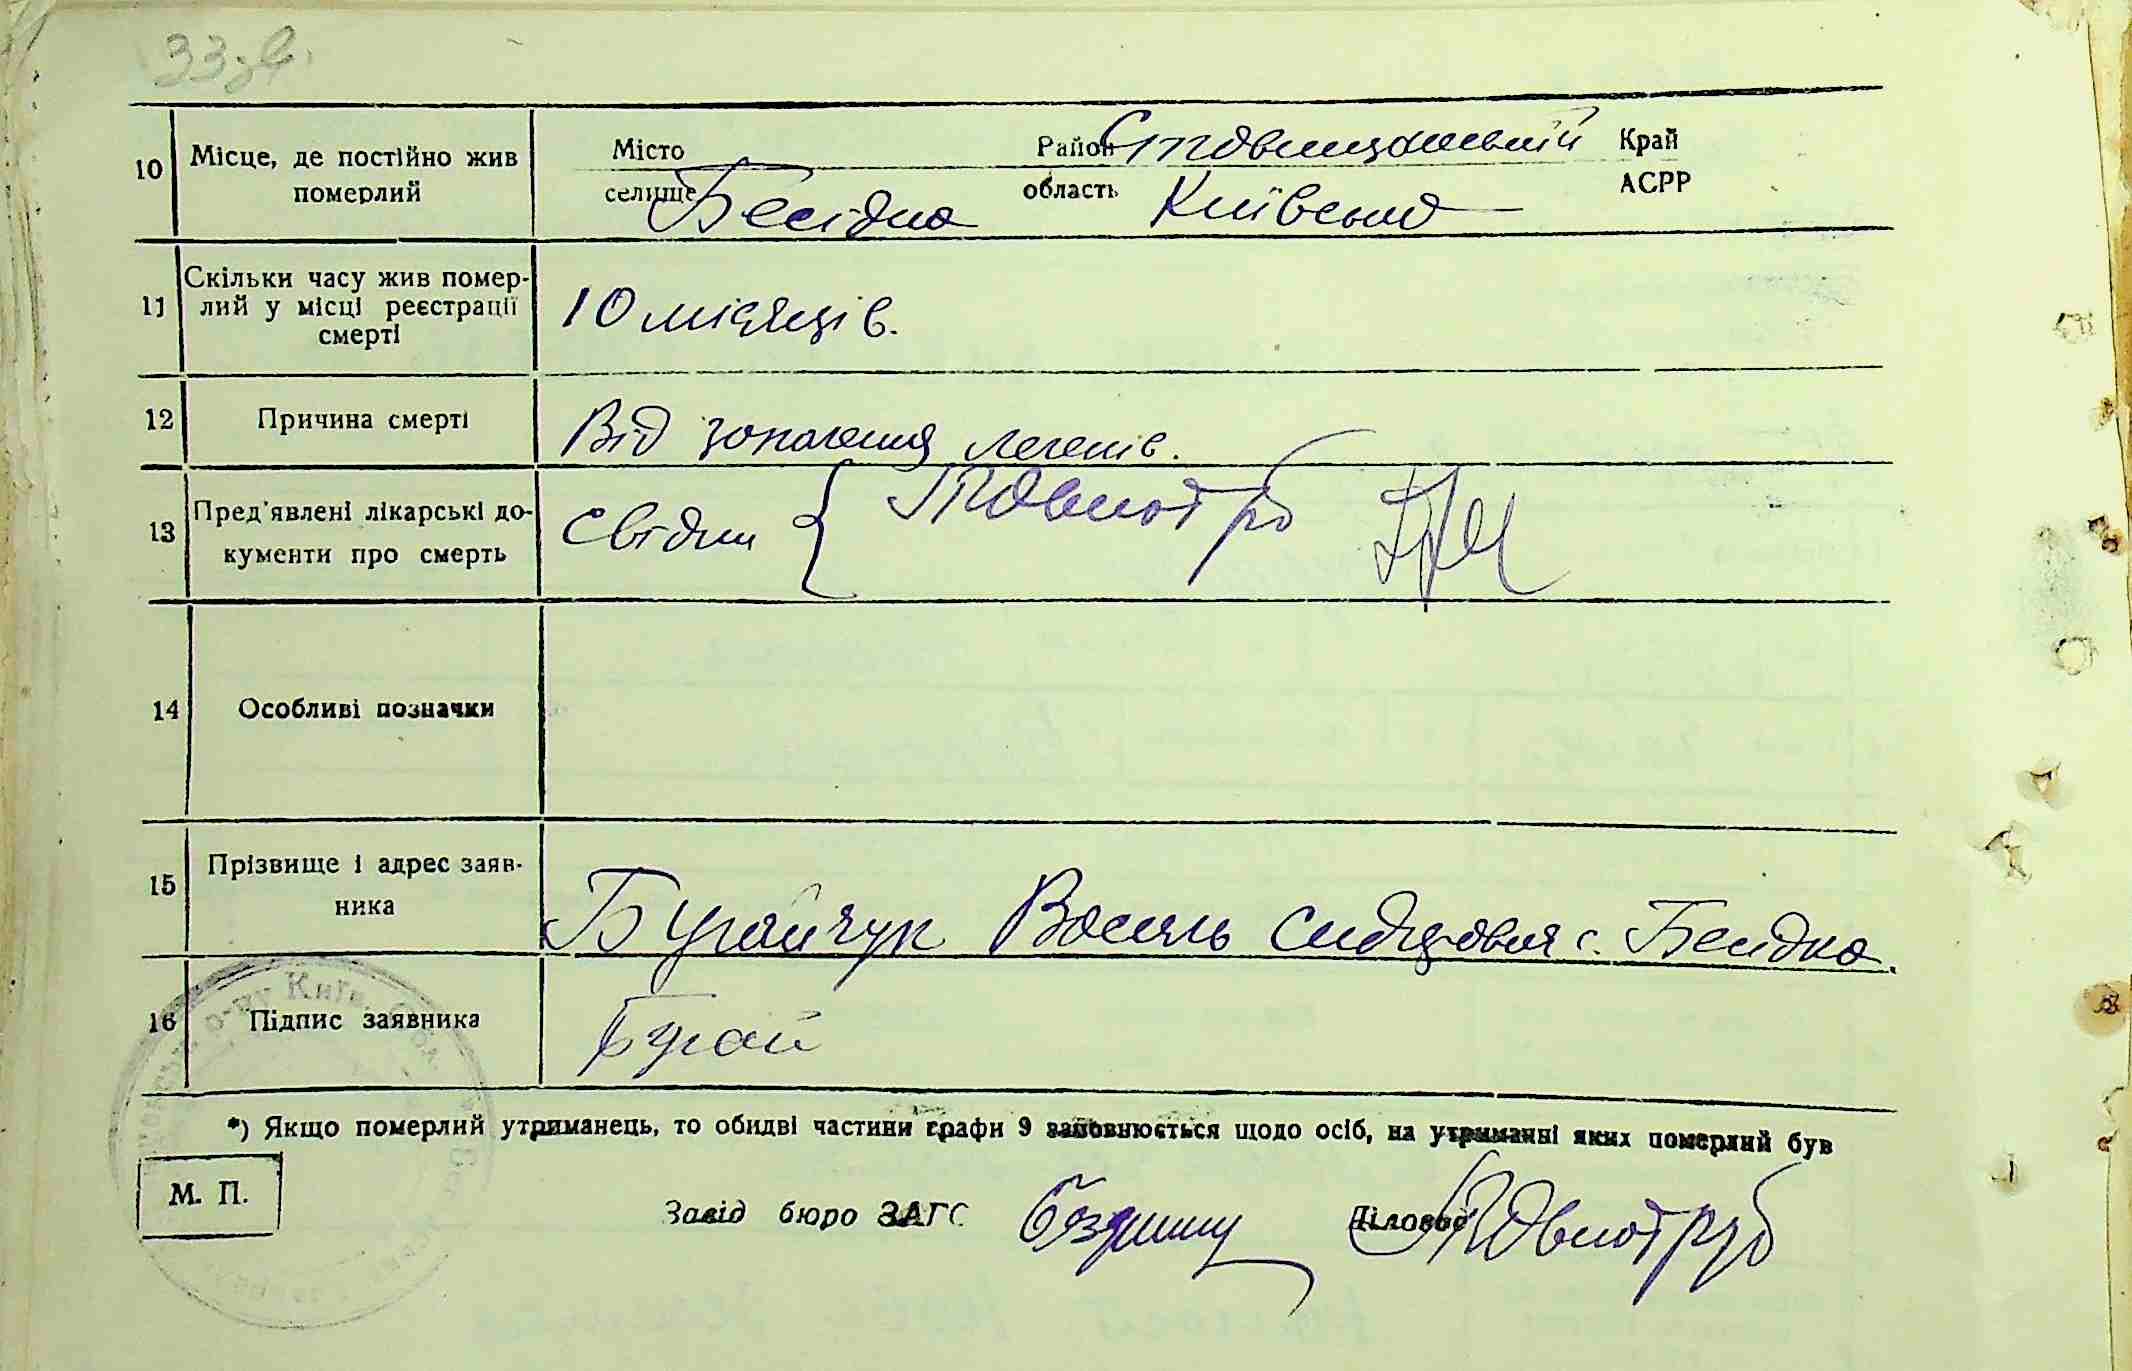 33 зв.
10 Місце, де постійно жив померлий
Місто Район Ставищанський Край
селище Бесідка область Київська АСРР
11 Скільки часу жив помер-
лий у місці реєстрації
смерті
10 місяців.
12 Причина смерті
Від запалення легенів.
13 Пред'явлені лікарські до-
кументи про смерть
Свідки {
14 Особливі позначки
15 Прізвище і адрес заяв-
ника
Бугайчук Василь с. Бесидка.
16 Підпис заявника
Бугай
*) Якщо померлий утриманець, то обидві частини графи 9 заповнюється щодо осіб, на утриманні яких померлий був
М. П.
Завід бюро ЗАГС Діловод
р-ну Київ.